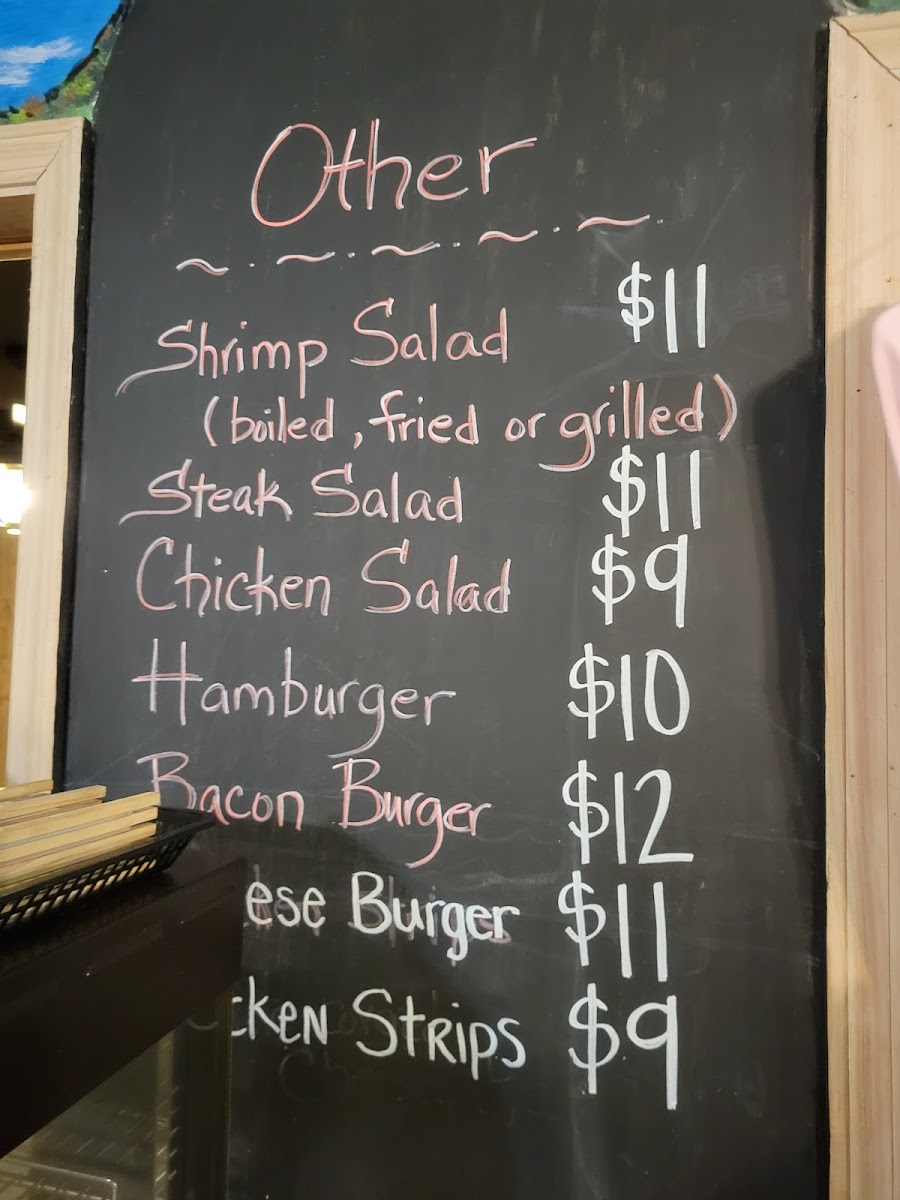 Other
Shrimp Salad $11
(boiled, fried or grilled)
Steak Salad $11
Chicken Salad $9
Hamburger $10
Bacon Burger $12
ese Burger $11
cken Strips $9